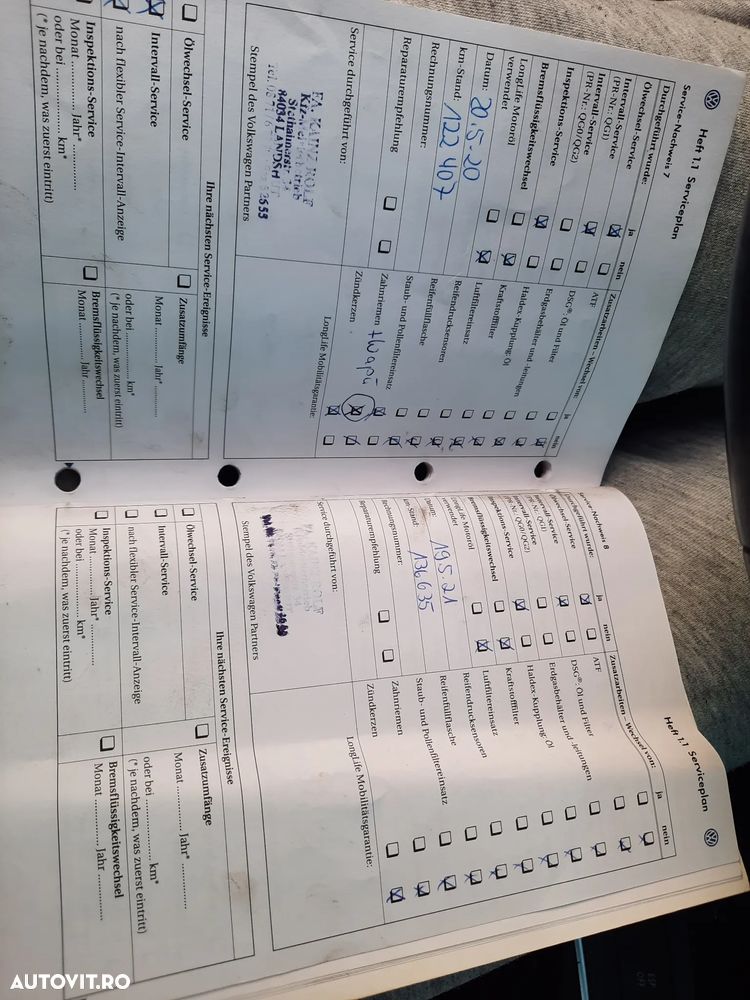 Heft 1.1 Serviceplan
Service-Nachweis 7
Durchgeführt wurde:
ja
nein
Ölwechsel-Service
Intervall-Service
(PR-Nr.: QG1)
Intervall-Service
(PR-Nr.: QG0/QG2)
Inspektions-Service
Bremsflüssigkeitswechsel
LongLife Motoröl
verwendet
Datum: 20.5-20
km-Stand: 122 407
Rechnungsnummer:
Reparaturempfehlung
Service durchgeführt von:
FA. KAINZ ROLF
84034 LANDSH
Stempel des Volkswagen Partners
Zusatzarbeiten – Wechsel von:
ja
nein
ATF
DSG®: Öl und Filter
Erdgasbehälter und -leitungen
Haldex-Kupplung: Öl
Kraftstofffilter
Luftfiltereinsatz
Reifendrucksensoren
Reifenfüllflasche
Staub- und Pollenfiltereinsatz
Zahnriemen + Wapu
Zündkerzen
LongLife Mobilitätsgarantie:
Ihre nächsten Service-Ereignisse
Ölwechsel-Service
Intervall-Service
nach flexibler Service-Intervall-Anzeige
Inspektions-Service
Monat ............ Jahr* ............
oder bei ............ km*
(* je nachdem, was zuerst eintritt)
Zusatzumfänge
Monat ............ Jahr* ............
oder bei ............ km*
(* je nachdem, was zuerst eintritt)
Bremsflüssigkeitswechsel
Monat ............ Jahr ............
Heft 1.1 Serviceplan
Service-Nachweis 8
Durchgeführt wurde:
ja
nein
Ölwechsel-Service
Intervall-Service
(PR-Nr.: QG1)
Intervall-Service
(PR-Nr.: QG0/QG2)
Inspektions-Service
Bremsflüssigkeitswechsel
LongLife Motoröl
verwendet
Datum: 19.5.21
km-Stand: 136 635
Rechnungsnummer:
Reparaturempfehlung
Service durchgeführt von:
Stempel des Volkswagen Partners
Zusatzarbeiten – Wechsel von:
ja
nein
ATF
DSG®: Öl und Filter
Erdgasbehälter und -leitungen
Haldex-Kupplung: Öl
Kraftstofffilter
Luftfiltereinsatz
Reifendrucksensoren
Reifenfüllflasche
Staub- und Pollenfiltereinsatz
Zahnriemen
Zündkerzen
LongLife Mobilitätsgarantie:
Ihre nächsten Service-Ereignisse
Ölwechsel-Service
Intervall-Service
nach flexibler Service-Intervall-Anzeige
Inspektions-Service
Monat ............ Jahr* ............
oder bei ............ km*
(* je nachdem, was zuerst eintritt)
Zusatzumfänge
Monat ............ Jahr* ............
oder bei ............ km*
(* je nachdem, was zuerst eintritt)
Bremsflüssigkeitswechsel
Monat ............ Jahr ............
ESP
OFF
AUTOVIT.RO